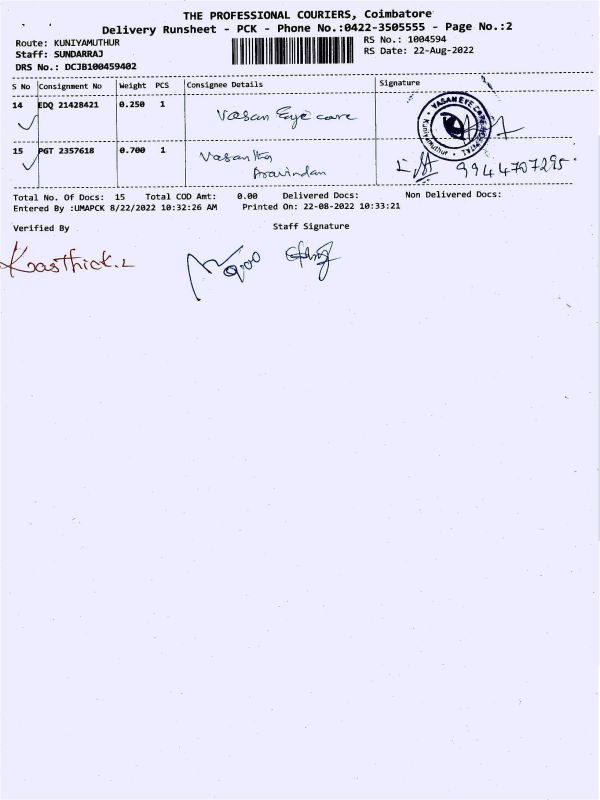 THE PROFESSIONAL COURIERS, Coimbatore
Delivery Runsheet - PCK - Phone No.:0422-3505555 - Page No.:2
Route: KUNIYAMUTHUR
Staff: SUNDARRAJ
DRS No.: DCJB100459402
RS No.: 1004594
RS Date: 22-Aug-2022
S No Consignment No Weight PCS Consignee Details Signature
14 EDQ 21428421 0.250 1 Vasan Eye care
VASAN EYE CARE HOSPITAL
Kuniyamuthur
15 PGT 2357618 0.700 1 Vasantha
Aravindan
9944707295
Total No. Of Docs: 15 Total COD Amt: 0.00 Delivered Docs: Non Delivered Docs:
Entered By :UMAPCK 8/22/2022 10:32:26 AM Printed On: 22-08-2022 10:33:21
Verified By Staff Signature
Kaasthick.L